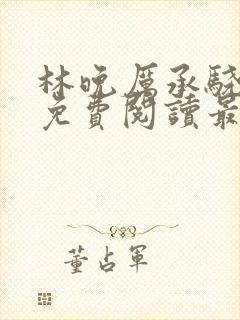 林晚厲承驍
免費閱讀最
董占軍